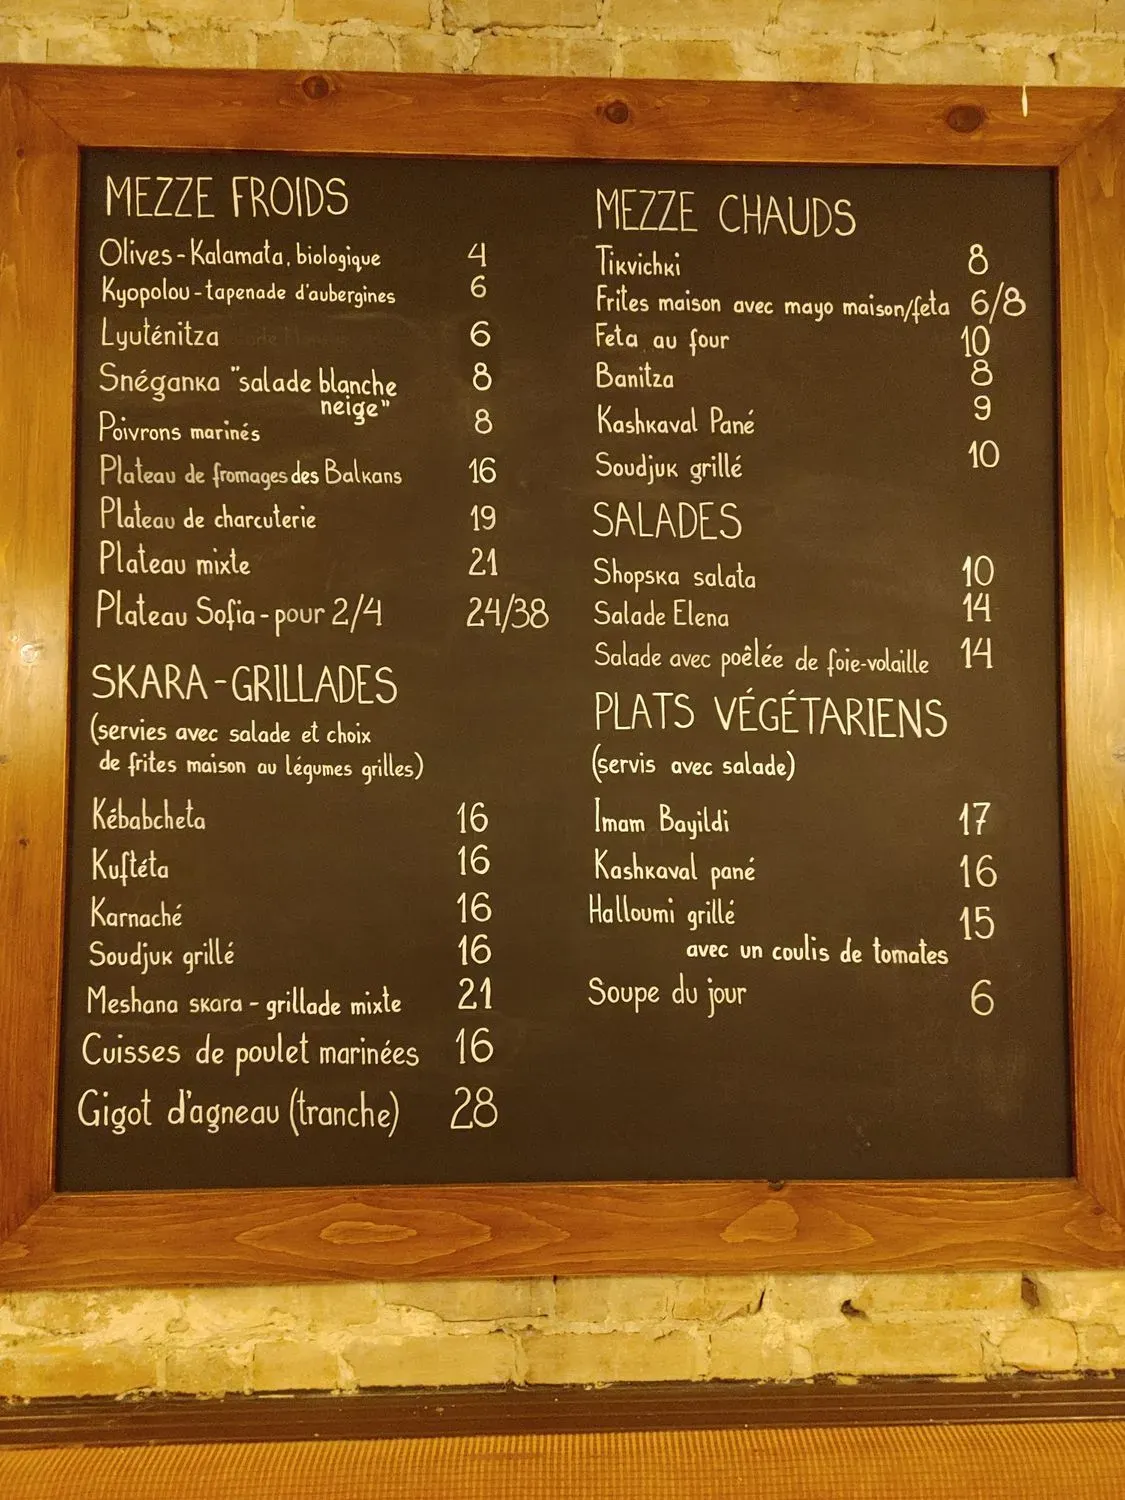 MEZZE FROIDS
Olives-Kalamata, biologique 4
Kyopolou-tapenade d'aubergines 6
Lyuténitza 6
Snéganka "salade blanche 8
neige"
Poivrons marinés 8
Plateau de fromages des Balkans 16
Plateau de charcuterie 19
Plateau mixte 21
Plateau Sofia-pour 2/4 24/38
SKARA-GRILLADES
(servies avec salade et choix
de frites maison au légumes grilles)
Kébabcheta 16
Kuftéta 16
Karnaché 16
Soudjuk grillé 16
Meshana skara - grillade mixte 21
Cuisses de poulet marinées 16
Gigot d'agneau (tranche) 28
MEZZE CHAUDS
Tikvichki 8
Frites maison avec mayo maison/feta 6/8
Feta au four 10
Banitza 8
Kashkaval Pané 9
Soudjuk grillé 10
SALADES
Shopska salata 10
Salade Elena 14
Salade avec poêlée de foie-volaille 14
PLATS VÉGÉTARIENS
(servis avec salade)
Imam Bayildi 17
Kashkaval pané 16
Halloumi grillé 15
avec un coulis de tomates
Soupe du jour 6